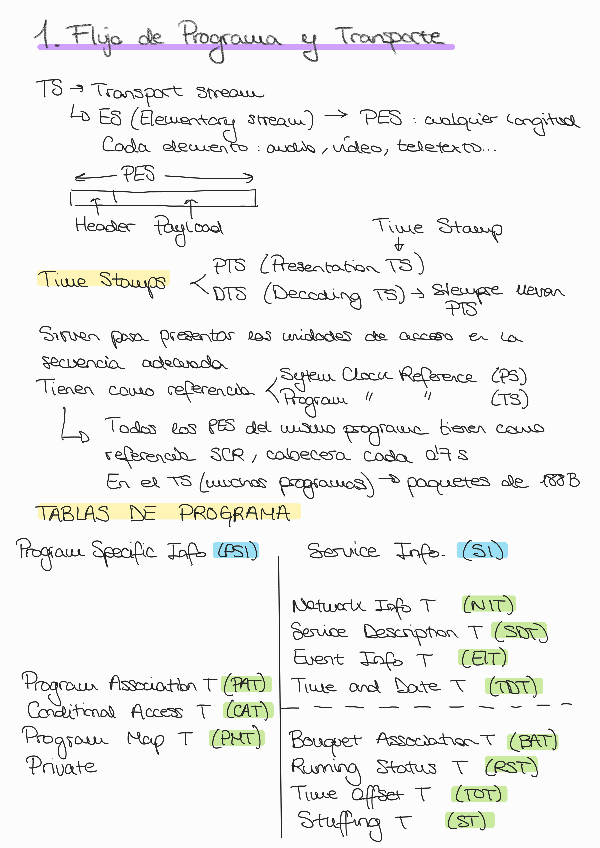 1. Flujo de Programa y Transporte
TS → Transport stream
↳ ES (Elementary stream) → PES : cualquier longitud
Cada elemento : audio, vídeo, teletexto...
PES
Header Payload
Time Stamp
Time Stamps
PTS (Presentation TS)
DTS (Decoding TS) → Siempre llevan
PTS
Sirven para presentar las unidades de acceso en la
secuencia adecuada
Tienen como referencia
Sytem Clock Reference (PS)
Program " " (TS)
↳ Todos los PES del mismo programa tienen como
referencia SCR, cabecera cada 0'7 s
En el TS (muchos programas) → paquetes de 188 B
TABLAS DE PROGRAMA
Program Specific Info (PSI)
Service Info. (SI)
Network Info T (NIT)
Service Description T (SDT)
Event Info T (EIT)
Time and Date T (TDT)
Program Association T (PAT)
Conditional Access T (CAT)
Program Map T (PMT)
Private
Bouquet Association T (BAT)
Running Status T (RST)
Time Offset T (TOT)
Stuffing T (ST)